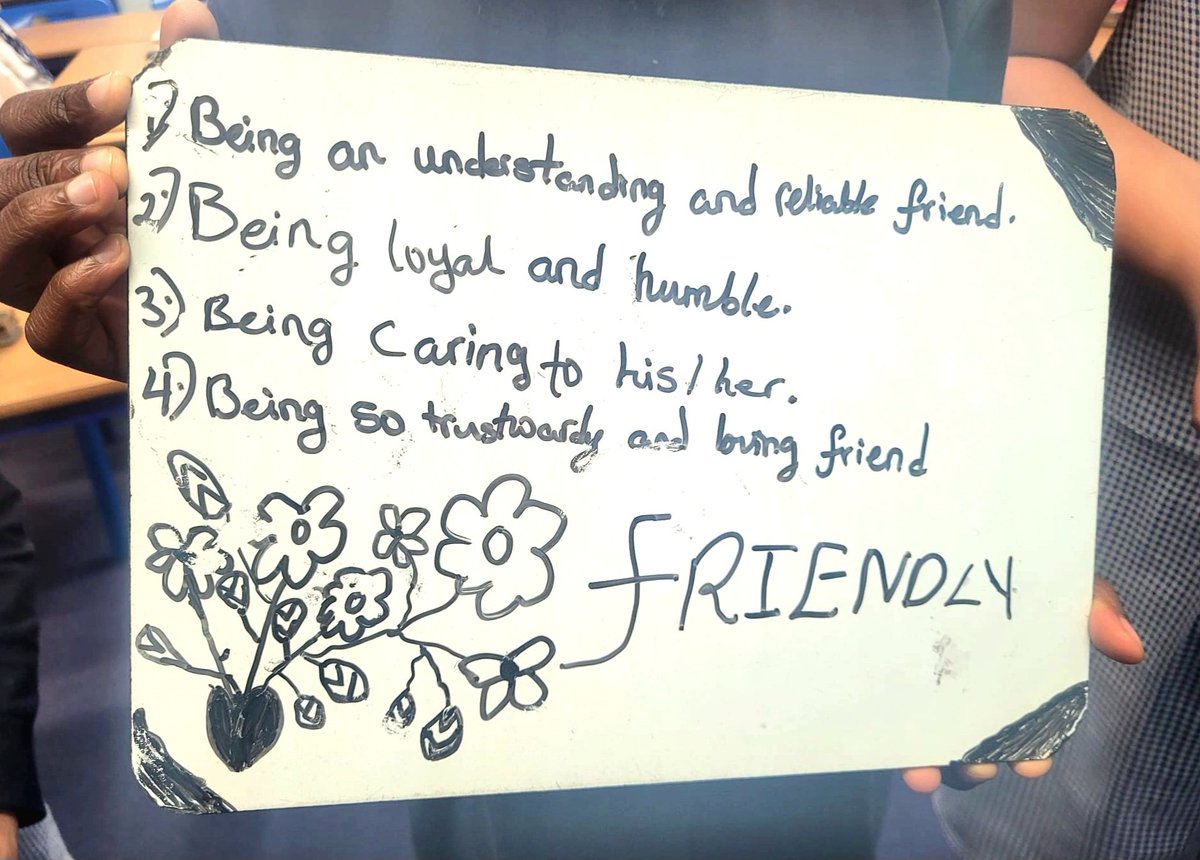 1) Being an understanding and reliable friend.
2) Being loyal and humble.
3) Being Caring to his/her.
4) Being so trustwardy and loving friend
fRIENDLY